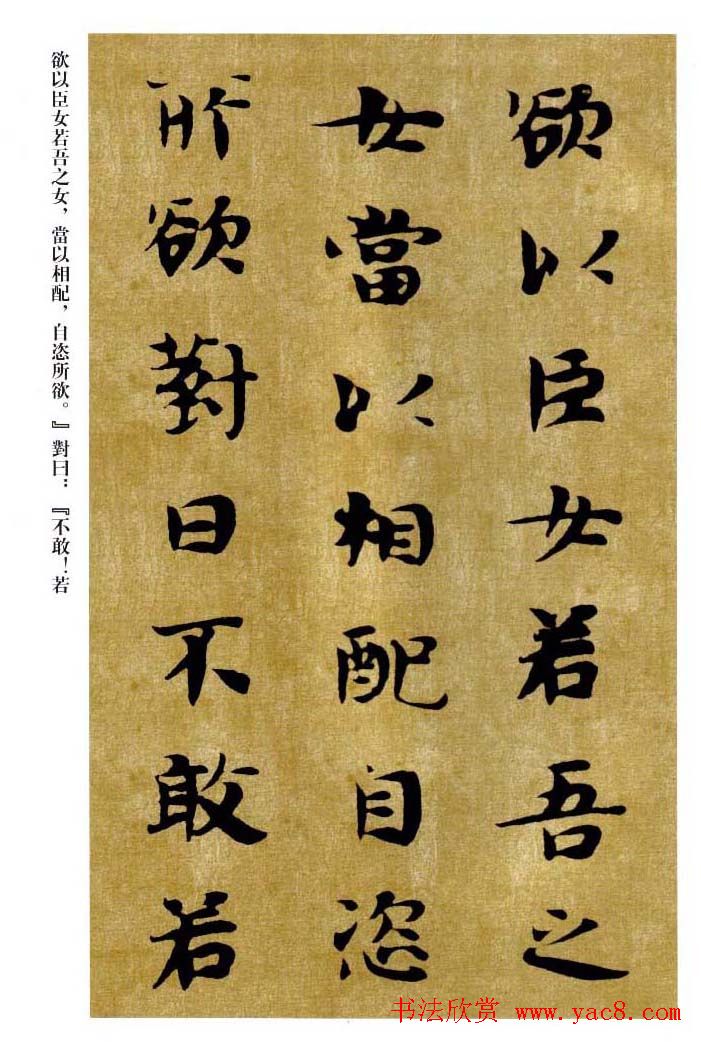 欲以臣女若吾之
女當以相配自恣
所欲對曰不敢若
欲以臣女若吾之女，當以相配，自恣所欲。』對曰：『不敢！若
书法欣赏 www.yac8.com